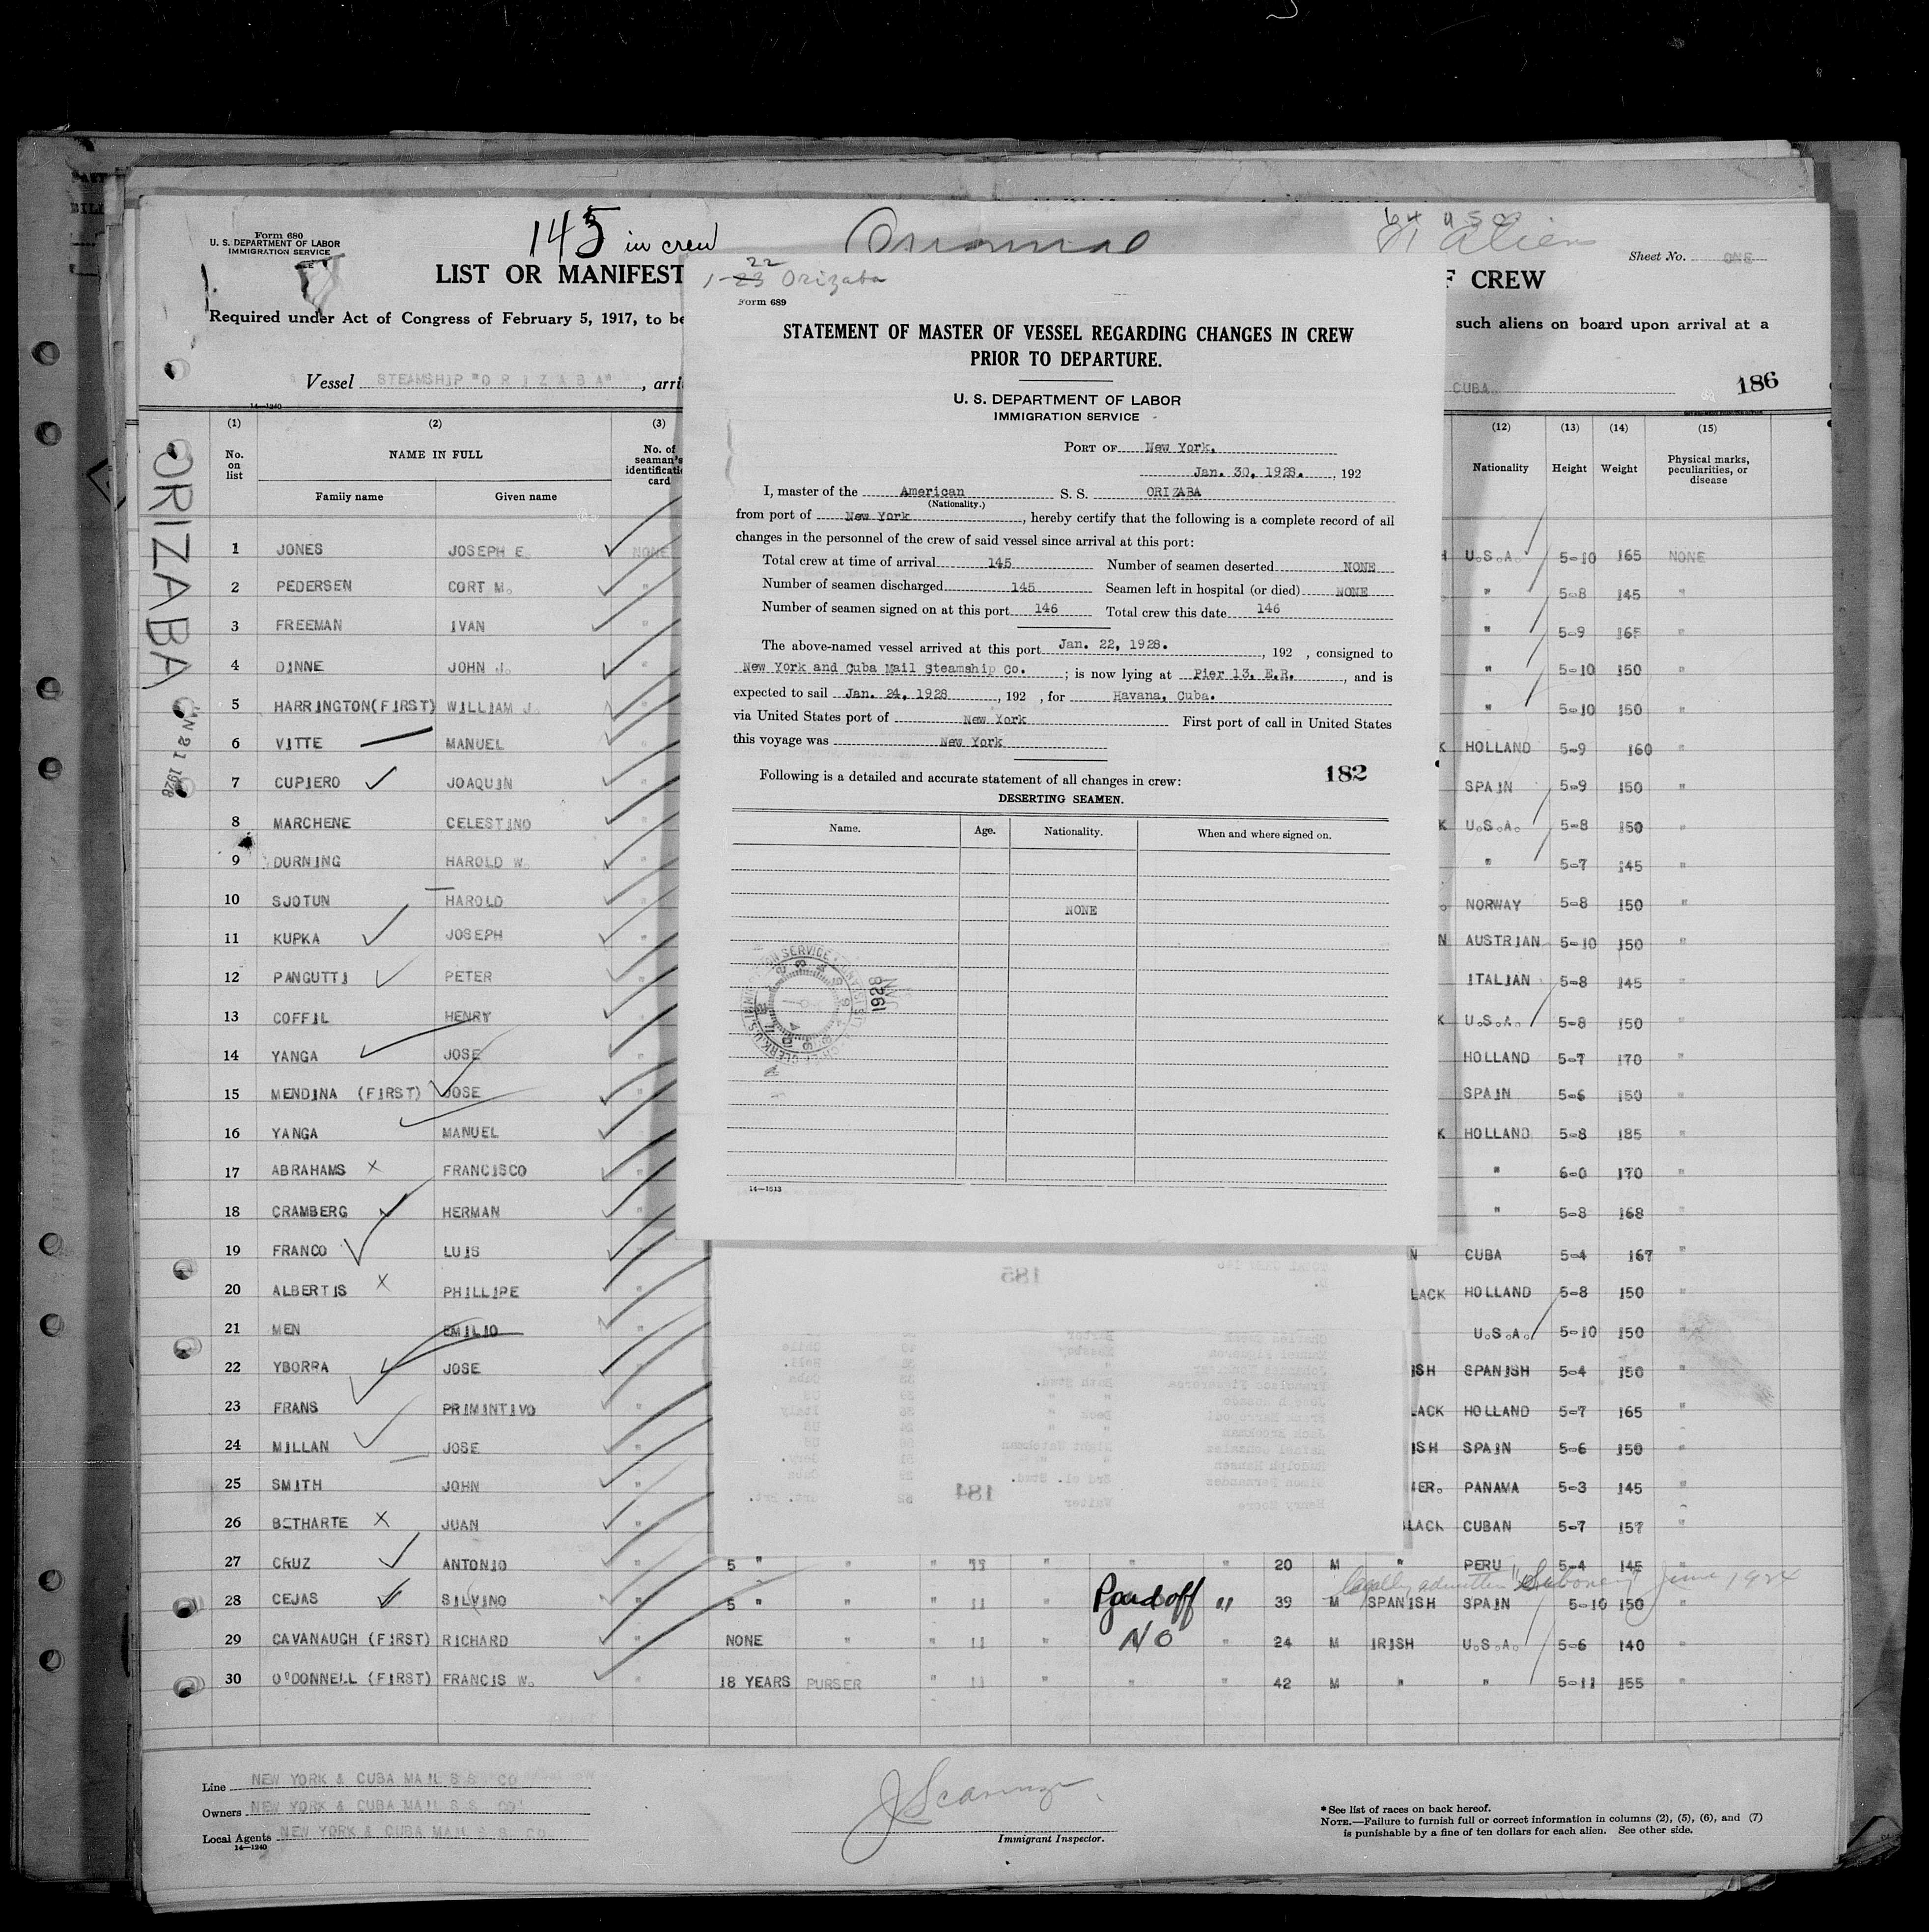 Form 680
U. S. DEPARTMENT OF LABOR
IMMIGRATION SERVICE
145 in crew
64 U S C
Alien
Sheet No. ONE
LIST OR MANIFEST
F CREW
Required under Act of Congress of February 5, 1917, to be
such aliens on board upon arrival at a
Vessel STEAMSHIP "O R I Z A B A", arri
CUBA
186
14—1240
ORIZABA
(1) (2) (3) (12) (13) (14) (15)
No. on list NAME IN FULL No. of seaman's identificati card Nationality Height Weight Physical marks, peculiarities, or disease
Family name Given name
1 JONES JOSEPH E. NONE U.S.A. 5-10 165 NONE
2 PEDERSEN CORT M. " " 5-8 145 "
3 FREEMAN IVAN " " 5-9 165 "
4 DINNE JOHN J. " " 5-10 150 "
5 HARRINGTON(FIRST) WILLIAM J. " 5-10 150 "
6 VITTE MANUEL " K HOLLAND 5-9 160 "
7 CUPIERO JOAQUIN " SPAIN 5-9 150 "
8 MARCHENE CELESTINO " K U.S.A. 5-8 150 "
9 DURNING HAROLD W. " " 5-7 145 "
10 SJOTUN HAROLD " NORWAY 5-8 150 "
11 KUPKA JOSEPH " N AUSTRIAN 5-10 150 "
12 PANGUTTI PETER " ITALIAN 5-8 145 "
13 COFFIL HENRY " K U.S.A. 5-8 150 "
14 YANGA JOSE " HOLLAND 5-7 170 "
15 MENDINA (FIRST) JOSE " SPAIN 5-6 150 "
16 YANGA MANUEL " K HOLLAND 5-8 185 "
17 ABRAHAMS X FRANCISCO " " 6-0 170 "
18 CRAMBERG HERMAN " " 5-8 168 "
19 FRANCO LUIS " N CUBA 5-4 167 "
20 ALBERTIS X PHILLIPE " LACK HOLLAND 5-8 150 "
21 MEN EMILIO " U.S.A. 5-10 150 "
22 YBORRA JOSE " ISH SPANISH 5-4 150 "
23 FRANS PRIMINTIVO " LACK HOLLAND 5-7 165 "
24 MILLAN JOSE " ISH SPAIN 5-6 150 "
25 SMITH JOHN " ER. PANAMA 5-3 145 "
26 BETHARTE X JUAN " LACK CUBAN 5-7 157 "
27 CRUZ ANTONIO " 5 " " " 11 " " " 20 M " PERU 5-4 145 "
legally admitted June 1924
28 CEJAS SILVINO " 5 " " " 11 " Paid off " 39 M SPANISH SPAIN 5-10 150 "
29 CAVANAUGH (FIRST) RICHARD " NONE " " 11 " NO " 24 M IRISH U.S.A. 5-6 140 "
30 O'DONNELL (FIRST) FRANCIS W. " 18 YEARS PURSER " 11 " " " 42 M " " 5-11 155 "
Line NEW YORK & CUBA MAIL S S CO
Owners NEW YORK & CUBA MAIL S S CO
Local Agents NEW YORK & CUBA MAIL S S CO
14—1240
Immigrant Inspector.
*See list of races on back hereof.
NOTE.—Failure to furnish full or correct information in columns (2), (5), (6), and (7)
is punishable by a fine of ten dollars for each alien. See other side.
22
1-23 Orizaba
Form 689
STATEMENT OF MASTER OF VESSEL REGARDING CHANGES IN CREW
PRIOR TO DEPARTURE.
U. S. DEPARTMENT OF LABOR
IMMIGRATION SERVICE
PORT OF New York.
Jan. 30, 1928. , 192
I, master of the American S. S. ORIZABA
(Nationality.)
from port of New York, hereby certify that the following is a complete record of all
changes in the personnel of the crew of said vessel since arrival at this port:
Total crew at time of arrival 145 Number of seamen deserted NONE
Number of seamen discharged 145 Seamen left in hospital (or died) NONE
Number of seamen signed on at this port 146 Total crew this date 146
The above-named vessel arrived at this port Jan. 22, 1928. , 192 , consigned to
New York and Cuba Mail Steamship Co. ; is now lying at Pier 13, E.R. , and is
expected to sail Jan. 24, 1928 , 192 , for Havana, Cuba.
via United States port of New York First port of call in United States
this voyage was New York
Following is a detailed and accurate statement of all changes in crew:
182
DESERTING SEAMEN.
Name. Age. Nationality. When and where signed on.
NONE
1928
14—1613
185
184